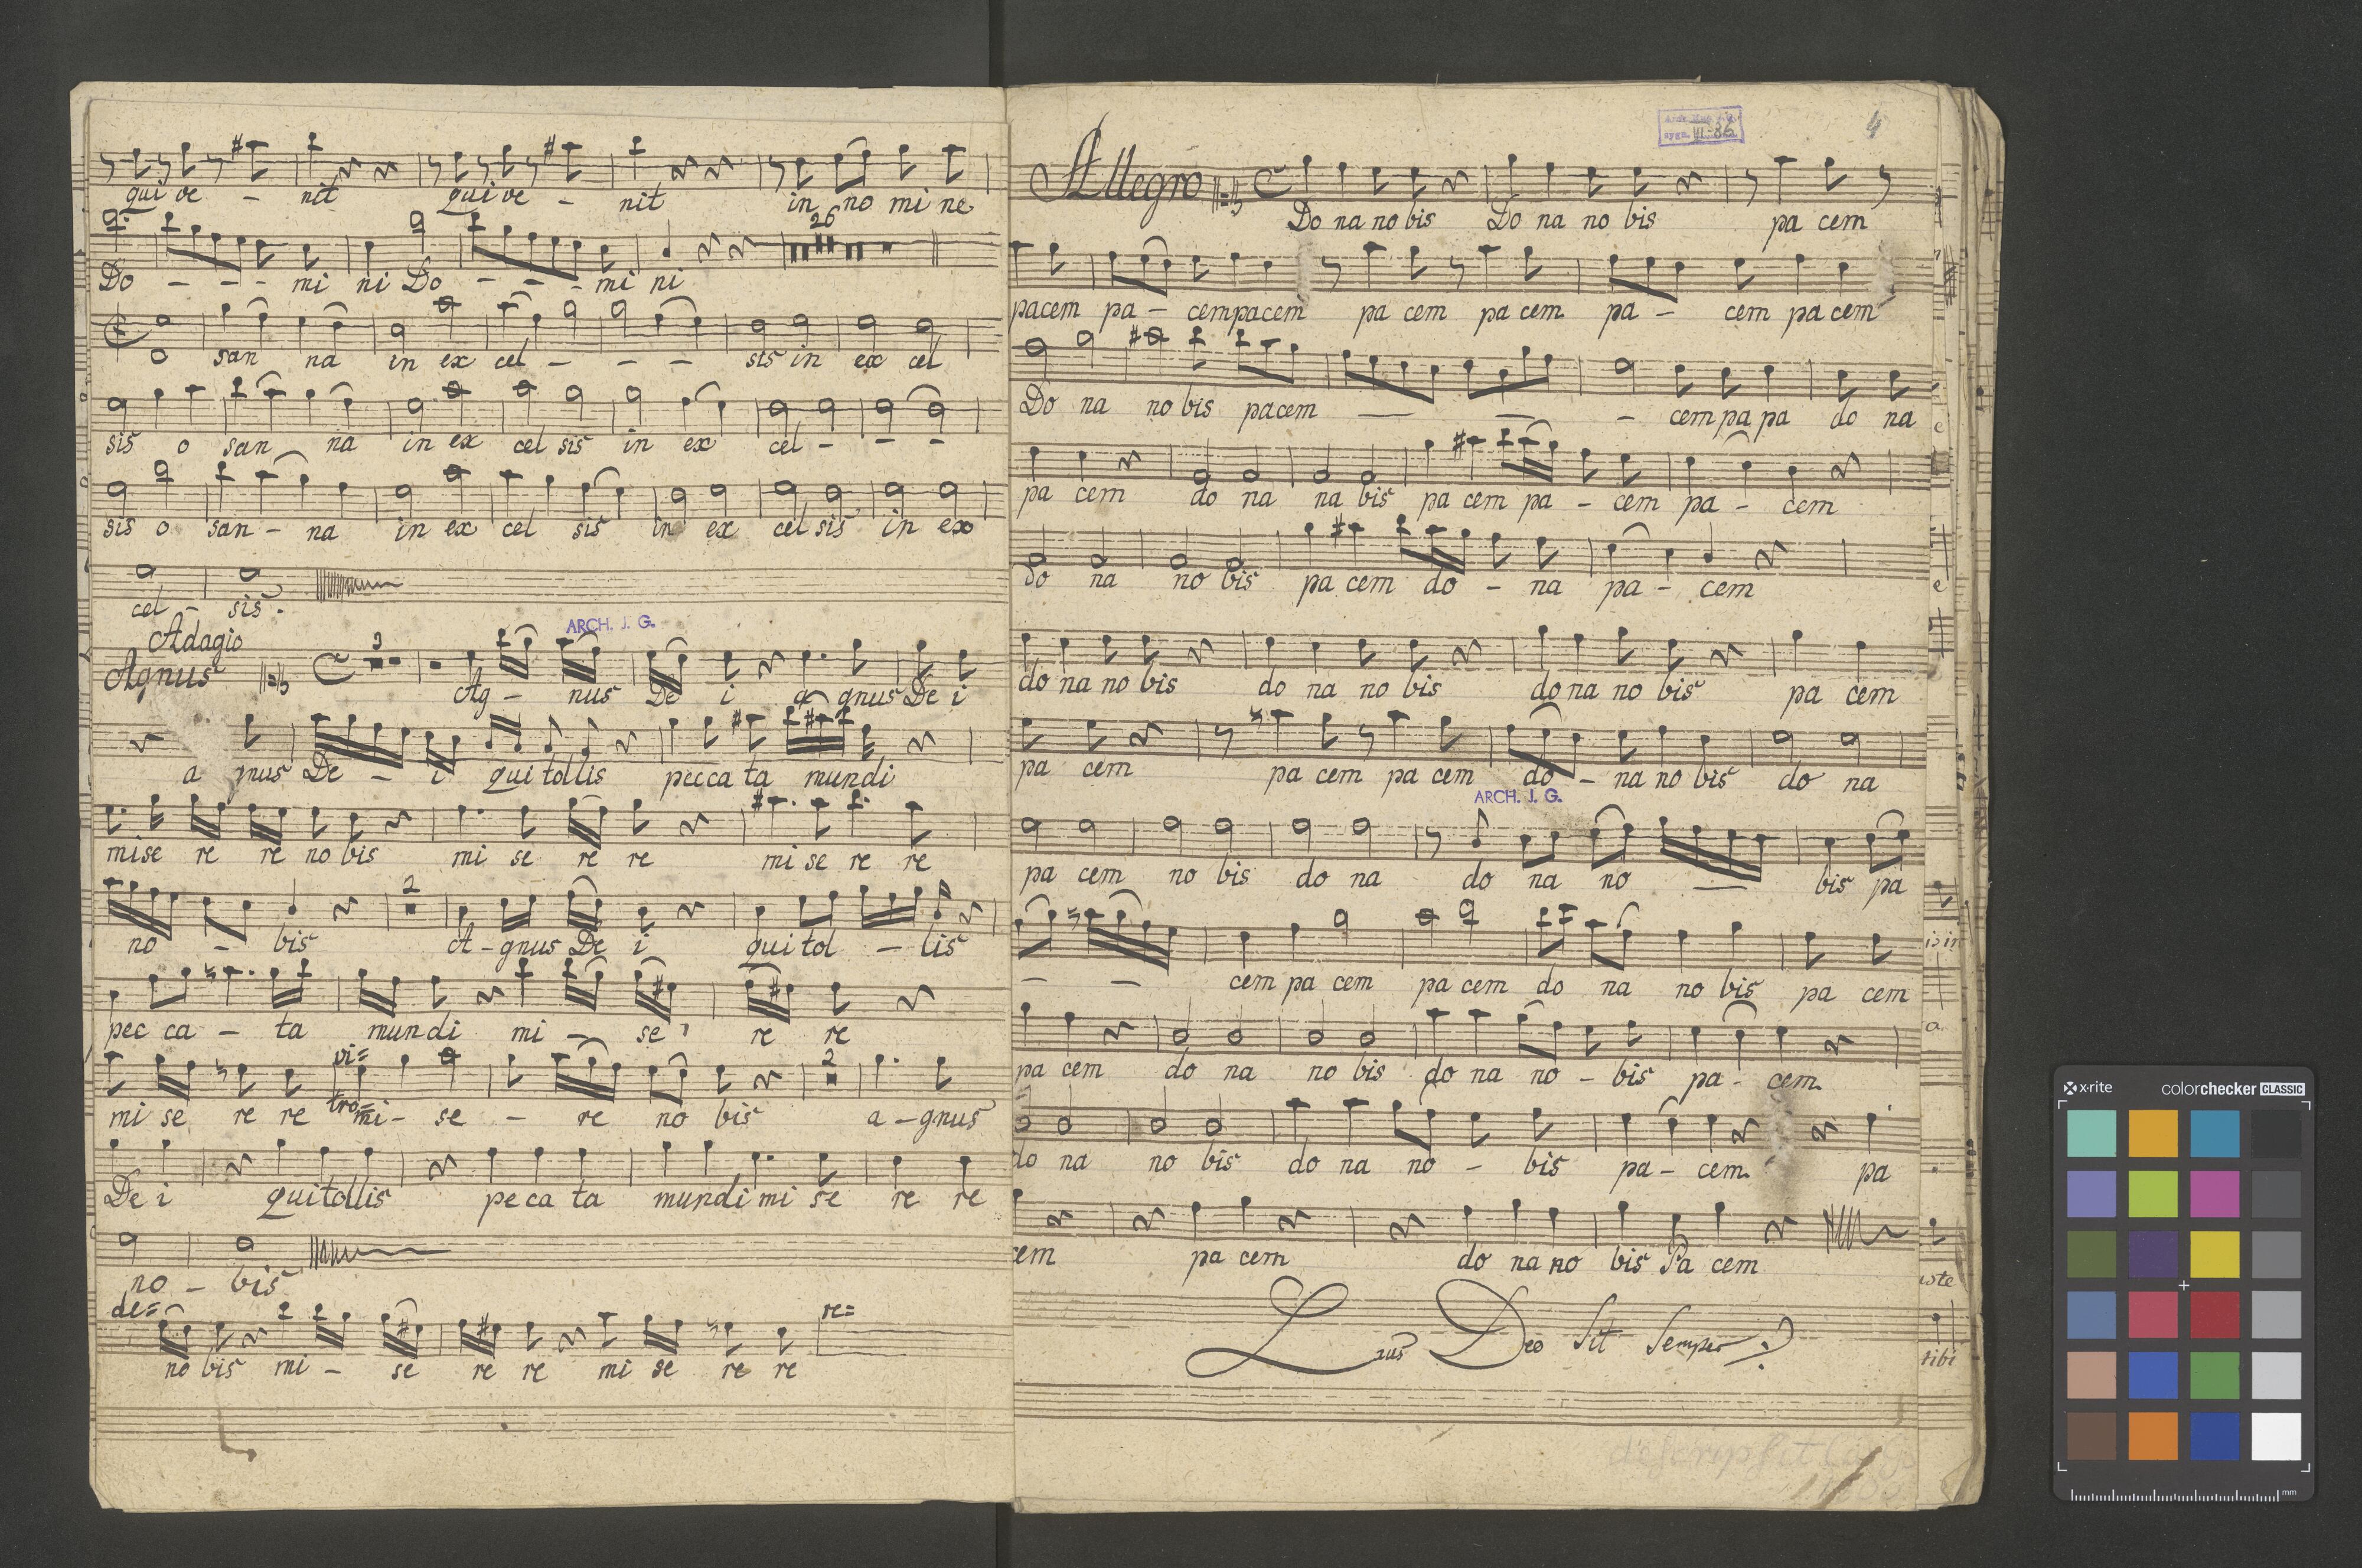 qui ve - nit qui ve - nit in no mi ne
26
Do - - - mi ni Do - - - mi ni
O san na in ex cel - - - sis in ex cel
sis o san na in ex cel sis in ex cel - - -
sis o san - na in ex cel sis in ex cel sis in ex
cel - sis.
ARCH. J. G.
Adagio
Agnus
3
Ag - nus De i a gnus De i
a gnus De - i qui tollis pecca ta mundi
mise re re no bis mi se re re mi se re re
2
no - bis A - gnus De i qui tol - lis
pec ca - ta mundi mi - se re re
vi= 2
mi se re re tro= mi - se - re no bis a - gnus
De i qui tollis pe ca ta mundi mi se re re
no - bis
de= re=
no bis mi - se re re mi se re re
VI-86
4
Allegro
Do na no bis Do na no bis pa cem
pacem pa - cem pacem pa cem pa cem pa - cem pa cem
Do na no bis pacem — — - cem pa pa do na
pa cem do na na bis pa cem pa - cem pa - cem
do na no bis pa cem do - na pa - cem
do na no bis do na no bis do na no bis pa cem
pa cem pa cem pa cem do - na no bis do na
ARCH. J. G.
pa cem no bis do na do na no — bis pa
- - cem pa cem pa cem do na no bis pa cem
pa cem do na no bis do na no - bis pa - cem.
do na no bis do na no - bis pa - cem. pa
cem pa cem do na no bis Pa cem
Laus Deo Sit Semper
descripsit
x-rite colorchecker CLASSIC
mm